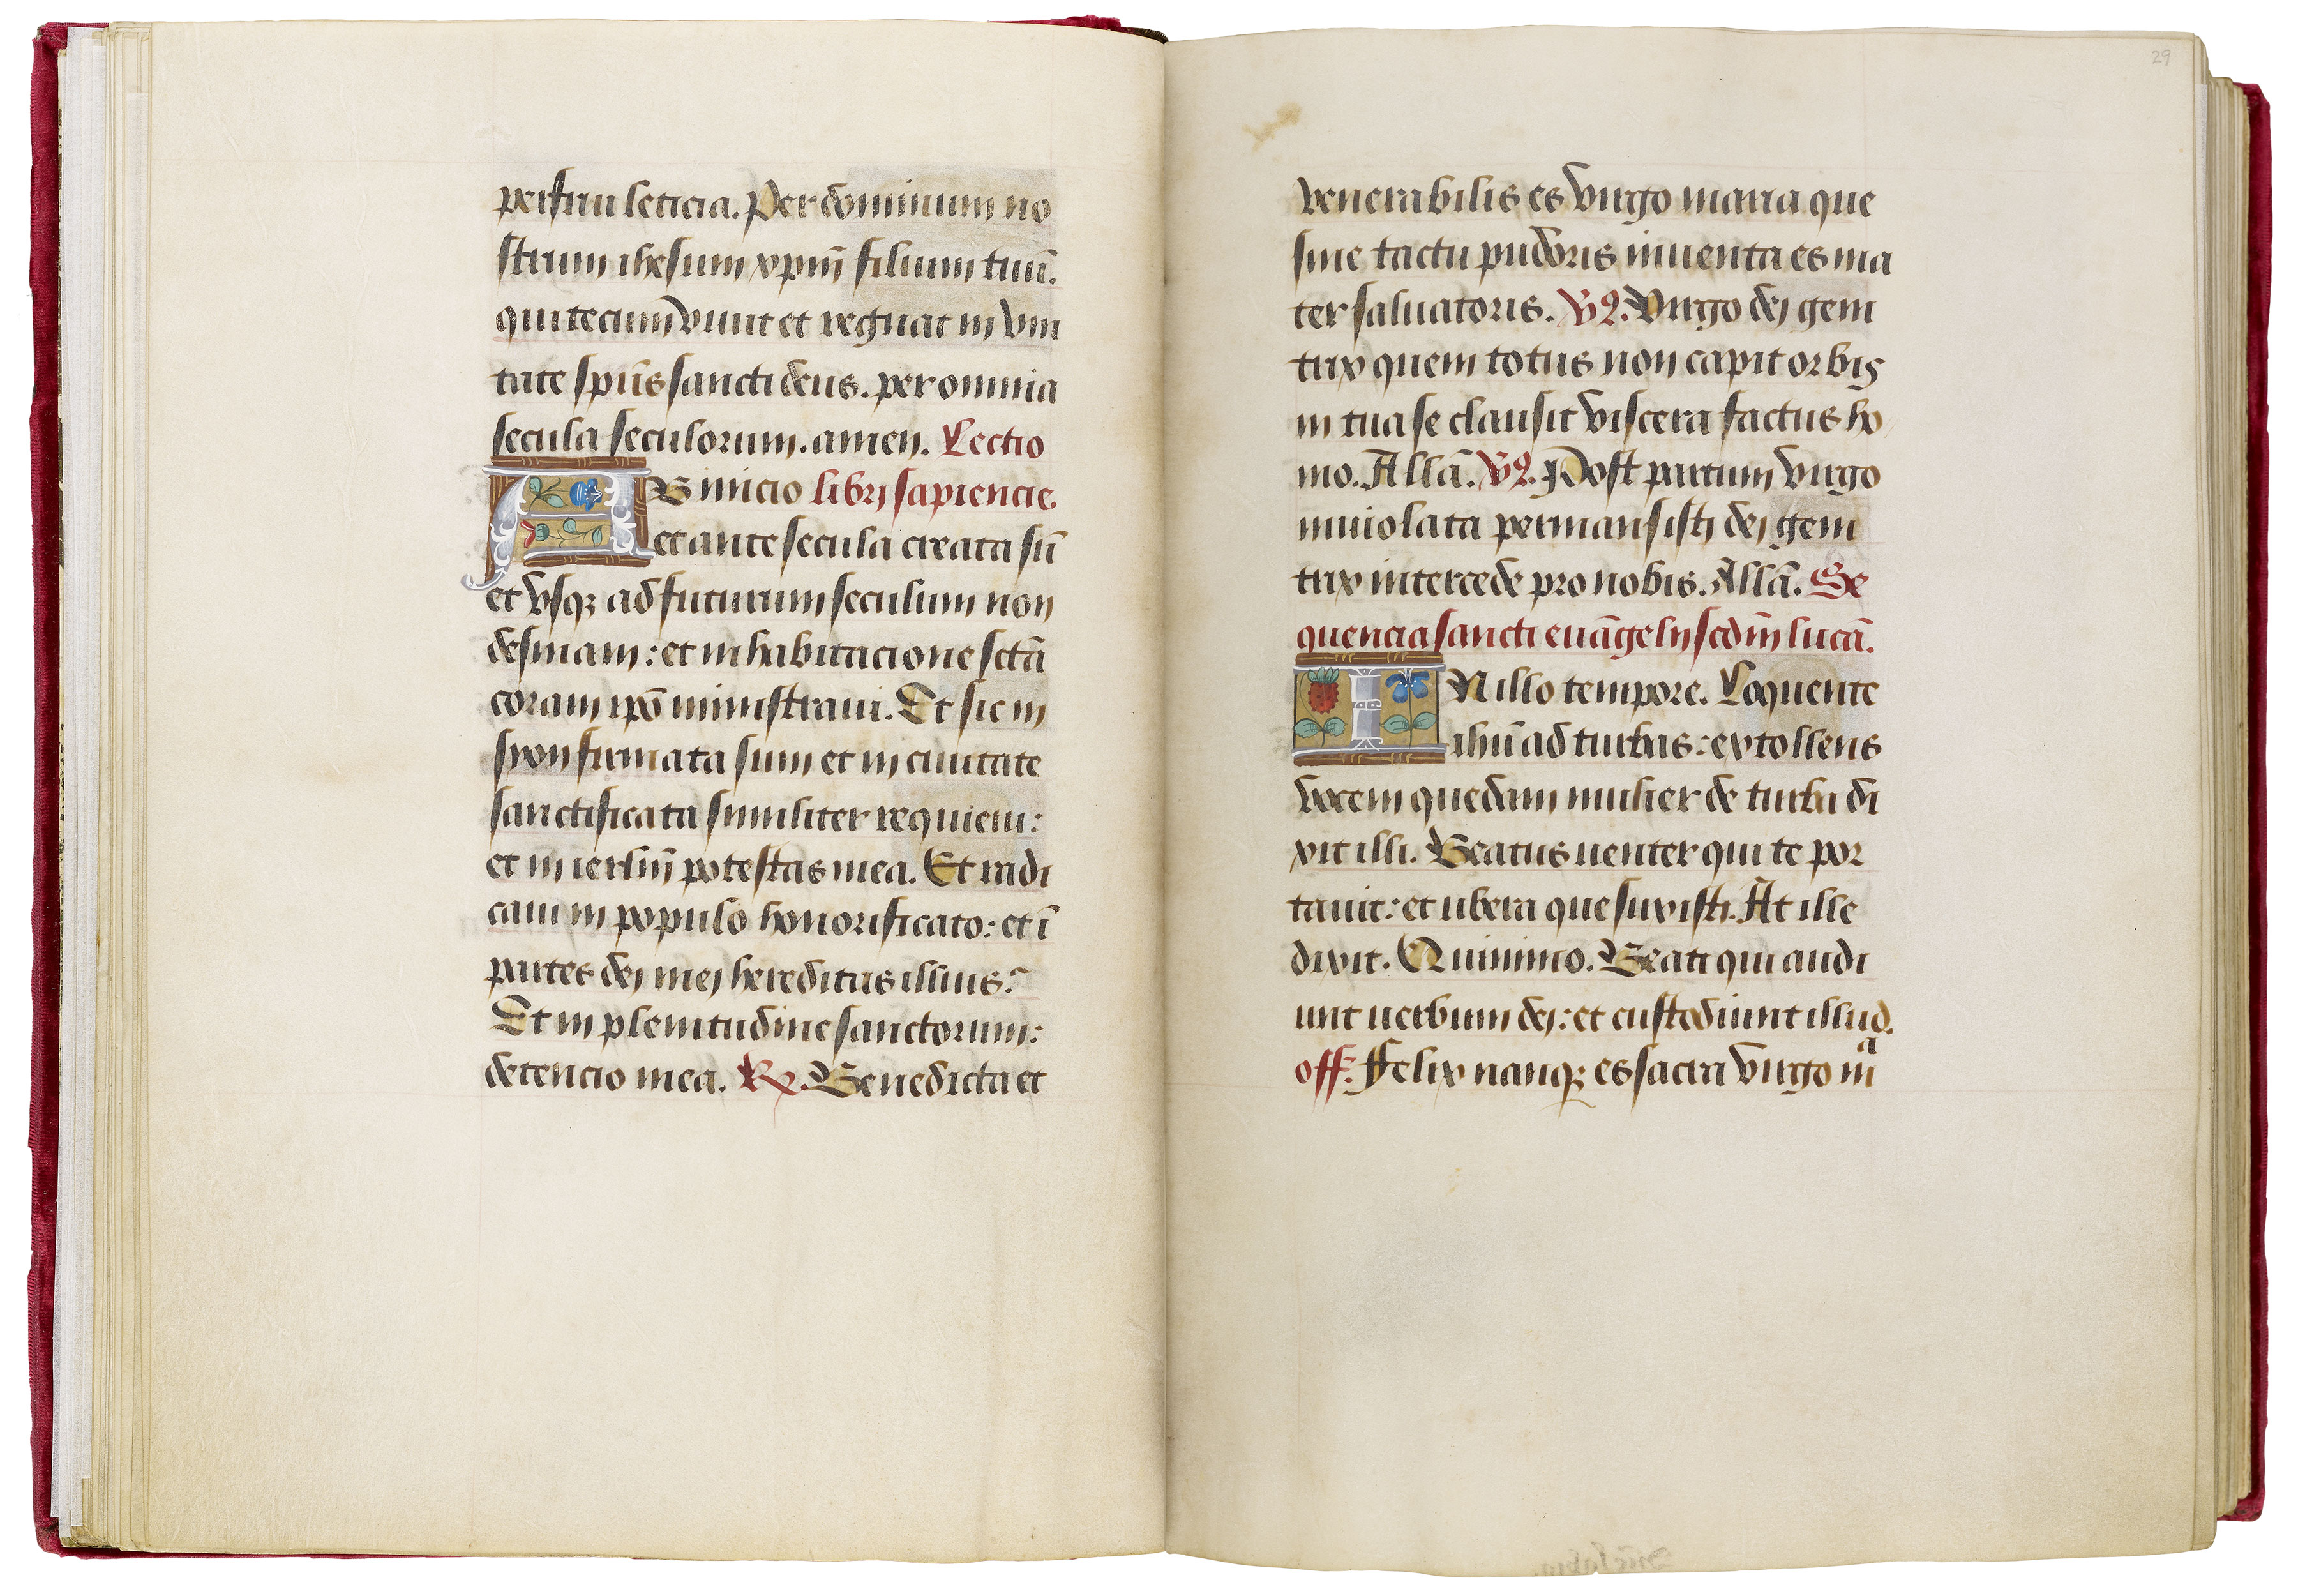 perfrui leticia. Per dominum no
strum ihesum xpm̄ filium tuū.
qui tecum viuit et regnat in vni
tate spūs sancti deus. per omnia
secula seculorum. amen. Lectio
AB inicio libri sapiencie.
et ante secula creata sū
et vsqꝫ ad futurum seculum non
desinam: et in habitacione sctā
coram ipō ministraui. Et sic in
syon firmata sum et in ciuitate
sanctificata similiter requieui:
et in ierlm̄ potestas mea. Et radi
caui in populo honorificato: et ī
partes dei mei hereditas illius:
Et in plenitudine sanctorum:
detencio mea. R̷. Benedicta et
29
venerabilis es virgo maria que
sine tactu pudoris inuenta es ma
ter saluatoris. V̷. Virgo dei geni
trix quem totus non capit orbis
in tua se clausit viscera factus ho
mo. Allā. V̷. Post partum virgo
inuiolata permansisti dei geni
trix intercede pro nobis. Allā. Se
quencia sancti euāgelij scdm̄ lucā.
IN illo tempore. Loquente
ihū ad turbas: extollens
vocem quedam mulier de turba di
xit illi. Beatus uenter qui te por
tauit: et ubera que suxisti. At ille
dixit. Quinimo. Beati qui audi
unt uerbum dei: et custodiunt illud.
off. Felix nanqꝫ es sacra virgo mᵃ